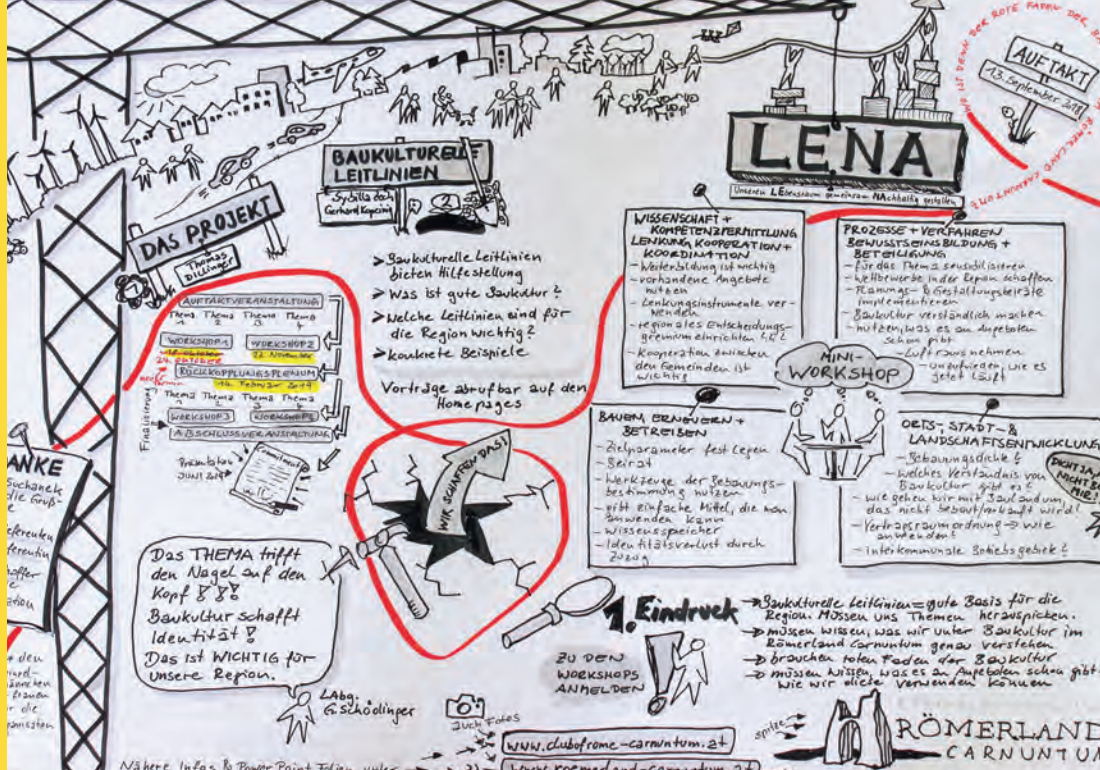 WO IST DENN DER ROTE FADEN DER
RÖMERLAND CARNUNTUM?
AUFTAKT
13. September 2018
LENA
Unseren LEbensraum gemeinsam NAchhaltig gestalten
BAUKULTURELLE
LEITLINIEN
Sybilla
Gerhard
2
DAS PROJEKT
Thomas
Dillinger
1
AUFTAKTVERANSTALTUNG
Thema Thema Thema Thema
1 2 3 4
WORKSHOP 1 WORKSHOP 2
24. OKTOBER 22. November
RÜCKKOPPLUNGSPLENUM
14. Februar 2019
Thema Thema Thema Thema
1 2 3 4
WORKSHOP 3
ABSCHLUSSVERANSTALTUNG
Finalisierung
Präsentation
JUNI 2019
Commitment
> Baukulturelle Leitlinien
bieten Hilfestellung
> Was ist gute Baukultur?
> Welche Leitlinien sind für
die Region wichtig?
> konkrete Beispiele
Vorträge abrufbar auf den
Homepages
WIR SCHAFFEN DAS!
WISSENSCHAFT +
KOMPETENZVERMITTLUNG
LENKUNG, KOOPERATION +
KOORDINATION
- Weiterbildung ist wichtig
- vorhandene Angebote
nutzen
- Lenkungsinstrumente ver-
wenden
- regionales Entscheidungs-
gremium einrichten
- Kooperation zwischen
den Gemeinden ist
wichtig
PROZESSE + VERFAHREN
BEWUSSTSEINSBILDUNG +
BETEILIGUNG
- für das Thema sensibilisieren
- Wettbewerbe in der Region schaffen
- Planungs- & Gestaltungsbeiräte
implementieren
- Baukultur verständlich machen
- nutzen, was es an Angeboten
schon gibt
- Luft rausnehmen
- unzufrieden, wie es
jetzt läuft
MINI-
WORKSHOP
BAUEN, ERNEUERN +
BETREIBEN
- Zielparameter festlegen
- Beirat
- Werkzeuge der Bebauungs-
bestimmung nutzen
- gibt einfache Mittel, die man
anwenden kann
- Wissensspeicher
- Identitätsverlust durch
Zuzug
ORTS-, STADT- &
LANDSCHAFTSENTWICKLUNG
- Bebauungsdichte?
- Welches Verständnis von
Baukultur gibt es?
- wie gehen wir mit Bauland um,
das nicht bebaut/verkauft wird?
- Vertragsraumordnung → wie
anwenden?
- interkommunale Betriebsgebiete?
DICHT JA,
NICHT BEI
MIR!
ANKE
Suchanek
die Gruß-
Das THEMA trifft
den Nagel auf den
Kopf!!!
Baukultur schafft
Identität!
Das ist WICHTIG für
unsere Region.
LAbg.
G. Schödinger
1. Eindruck
→ Baukulturelle Leitlinien = gute Basis für die
Region. Müssen uns Themen herauspicken.
→ müssen wissen, was wir unter Baukultur im
Römerland Carnuntum genau verstehen
→ brauchen roten Faden der Baukultur
→ müssen wissen, was es an Angeboten schon gibt +
wie wir diese verwenden können
ZU DEN
WORKSHOPS
ANMELDEN
auch Fotos
www.clubofrome-carnuntum.at
www.roemerland-carnuntum.at
Nähere Infos & Power Point Folien unter
spitze
RÖMERLAND
CARNUNTUM